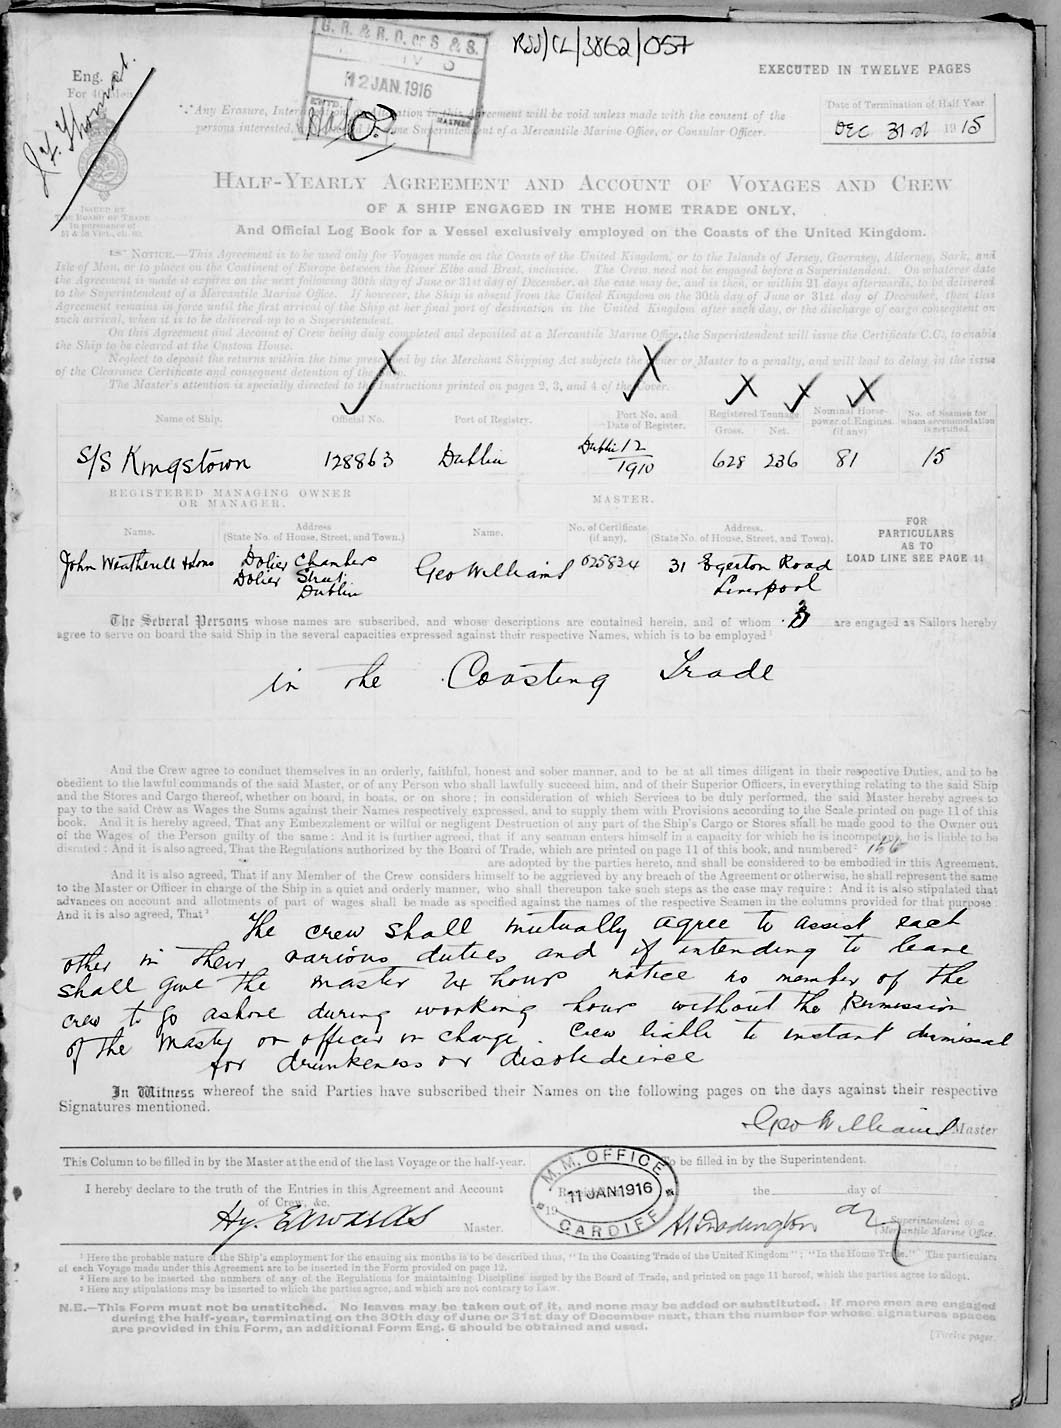 RSS/CL/3862/057
G. R. & R. O. of S. & S.
12 JAN. 1916
EXECUTED IN TWELVE PAGES
Eng.
Date of Termination of Half Year
DEC 31st 1915
Any Erasure, in this Agreement will be void unless made with the consent of the
persons interested, Superintendent of a Mercantile Marine Office, or Consular Officer.
ISSUED BY
THE BOARD OF TRADE
In pursuance of
HALF-YEARLY AGREEMENT AND ACCOUNT OF VOYAGES AND CREW
OF A SHIP ENGAGED IN THE HOME TRADE ONLY,
And Official Log Book for a Vessel exclusively employed on the Coasts of the United Kingdom.
NOTICE.—This Agreement is to be used only for Voyages made on the Coasts of the United Kingdom, or to the Islands of Jersey, Guernsey, Alderney, Sark, and
Isle of Man, or to places on the Continent of Europe between the River Elbe and Brest, inclusive. The Crew need not be engaged before a Superintendent. On whatever date
the Agreement is made it expires on the next following 30th day of June or 31st day of December, as the case may be, and is then, or within 21 days afterwards, to be delivered
to the Superintendent of a Mercantile Marine Office. If however, the Ship is absent from the United Kingdom on the 30th day of June or 31st day of December, then this
Agreement remains in force until the first arrival of the Ship at her final port of destination in the United Kingdom after such day, or the discharge of cargo consequent on
such arrival, when it is to be delivered up to a Superintendent.
On this Agreement and Account of Crew being duly completed and deposited at a Mercantile Marine Office, the Superintendent will issue the Certificate C.C., to enable
the Ship to be cleared at the Custom House.
Neglect to deposit the returns within the time prescribed by the Merchant Shipping Act subjects the Owner or Master to a penalty, and will lead to delay in the issue
of the Clearance Certificate and consequent detention of the
The Master's attention is specially directed to the Instructions printed on pages 2, 3, and 4 of the Cover.
Name of Ship. Official No. Port of Registry. Port No. and Date of Register. Registered Tonnage Gross. Net. Nominal Horse-power of Engines (if any) No. of Seamen for whom accommodation is certified.
S/S Kingstown 128863 Dublin Dublin 12/1910 628 236 81 15
REGISTERED MANAGING OWNER OR MANAGER. MASTER.
Name. Address (State No. of House, Street, and Town.) Name. No. of Certificate (if any). Address. (State No. of House, Street, and Town).
FOR PARTICULARS AS TO LOAD LINE SEE PAGE 11
John Weatherill & Sons Dolier Chambers Geo Williams 025824 31 Egerton Road
Dolier Street Liverpool
Dublin
The Several Persons whose names are subscribed, and whose descriptions are contained herein, and of whom 3 are engaged as Sailors hereby
agree to serve on board the said Ship in the several capacities expressed against their respective Names, which is to be employed¹
in the Coasting Trade
And the Crew agree to conduct themselves in an orderly, faithful, honest and sober manner, and to be at all times diligent in their respective Duties, and to be
obedient to the lawful commands of the said Master, or of any Person who shall lawfully succeed him, and of their Superior Officers, in everything relating to the said Ship
and the Stores and Cargo thereof, whether on board, in boats, or on shore; in consideration of which Services to be duly performed, the said Master hereby agrees to
pay to the said Crew as Wages the Sums against their Names respectively expressed, and to supply them with Provisions according to the Scale printed on page 11 of this
book. And it is hereby agreed, That any Embezzlement or wilful or negligent Destruction of any part of the Ship's Cargo or Stores shall be made good to the Owner out
of the Wages of the Person guilty of the same: And it is further agreed, that if any seaman enters himself in a capacity for which he is incompetent, he is liable to be
disrated: And it is also agreed, That the Regulations authorized by the Board of Trade, which are printed on page 11 of this book, and numbered²
are adopted by the parties hereto, and shall be considered to be embodied in this Agreement.
And it is also agreed, That if any Member of the Crew considers himself to be aggrieved by any breach of the Agreement or otherwise, he shall represent the same
to the Master or Officer in charge of the Ship in a quiet and orderly manner, who shall thereupon take such steps as the case may require: And it is also stipulated that
advances on account and allotments of part of wages shall be made as specified against the names of the respective Seamen in the columns provided for that purpose:
And it is also agreed, That³
The crew shall mutually agree to assist each
other in their various duties and if intending to leave
shall give the master 24 hours notice no member of the
crew to go ashore during working hours without the Permission
of the Master or officer in charge. Crew liable to instant dismissal
for drunkeness or disobedience
In Witness whereof the said Parties have subscribed their Names on the following pages on the days against their respective
Signatures mentioned.
Geo Williams Master
This Column to be filled in by the Master at the end of the last Voyage or the half-year. To be filled in by the Superintendent.
I hereby declare to the truth of the Entries in this Agreement and Account
of Crew, &c.
Hy. Edwards Master.
M.M. OFFICE
11 JAN 1916
CARDIFF
the day of
Superintendent of a
Mercantile Marine Office.
¹ Here the probable nature of the Ship's employment for the ensuing six months is to be described thus, "In the Coasting Trade of the United Kingdom"; "In the Home Trade." The particulars
of each Voyage made under this Agreement are to be inserted in the Form provided on page 12.
² Here are to be inserted the numbers of any of the Regulations for maintaining Discipline issued by the Board of Trade, and printed on page 11 hereof, which the parties agree to adopt.
³ Here any stipulations may be inserted to which the parties agree, and which are not contrary to Law.
N.B.—This Form must not be unstitched. No leaves may be taken out of it, and none may be added or substituted. If more men are engaged
during the half-year, terminating on the 30th day of June or 31st day of December next, than the number for whose signatures spaces
are provided in this Form, an additional Form Eng. 6 should be obtained and used.
[Twelve pages